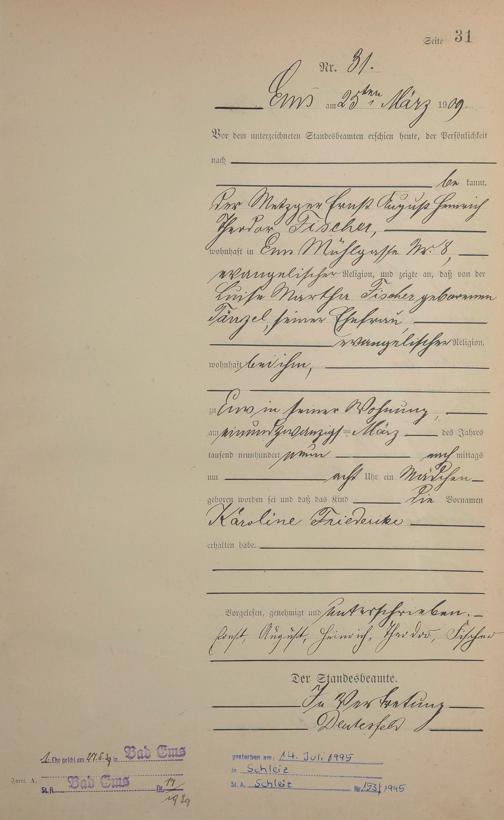 Seite 31
Nr. 31.
Ems am 25ten März 1909
Vor dem unterzeichneten Standesbeamten erschien heute, der Persönlichkeit
nach
be kannt,
der Metzger Ernst August Heinrich
Theodor Fischer,
wohnhaft in Ems Mühlgasse Nr. 8,
evangelischer Religion, und zeigte an, daß von der
Luise Martha Fischer geborenen
Tänzel, seiner Ehefrau,
evangelischer Religion,
wohnhaft bei ihm,
zu Ems in seiner Wohnung,
am einundzwanzigsten März des Jahres
tausend neunhundert neun nachmittags
um acht Uhr ein Mädchen
geboren worden sei und daß das Kind die Vornamen
Karoline Friederike
erhalten habe.
Vorgelesen, genehmigt und unterschrieben.
Ernst, August, Heinrich, Theodor, Fischer
Der Standesbeamte.
In Vertretung
1. Ehe geschl. am in Bad Ems
Form. A.
St. A. Bad Ems Nr.
gestorben am: 14. Juli 1995
in Schleiz
St. A. Schleiz Nr. 153/1995